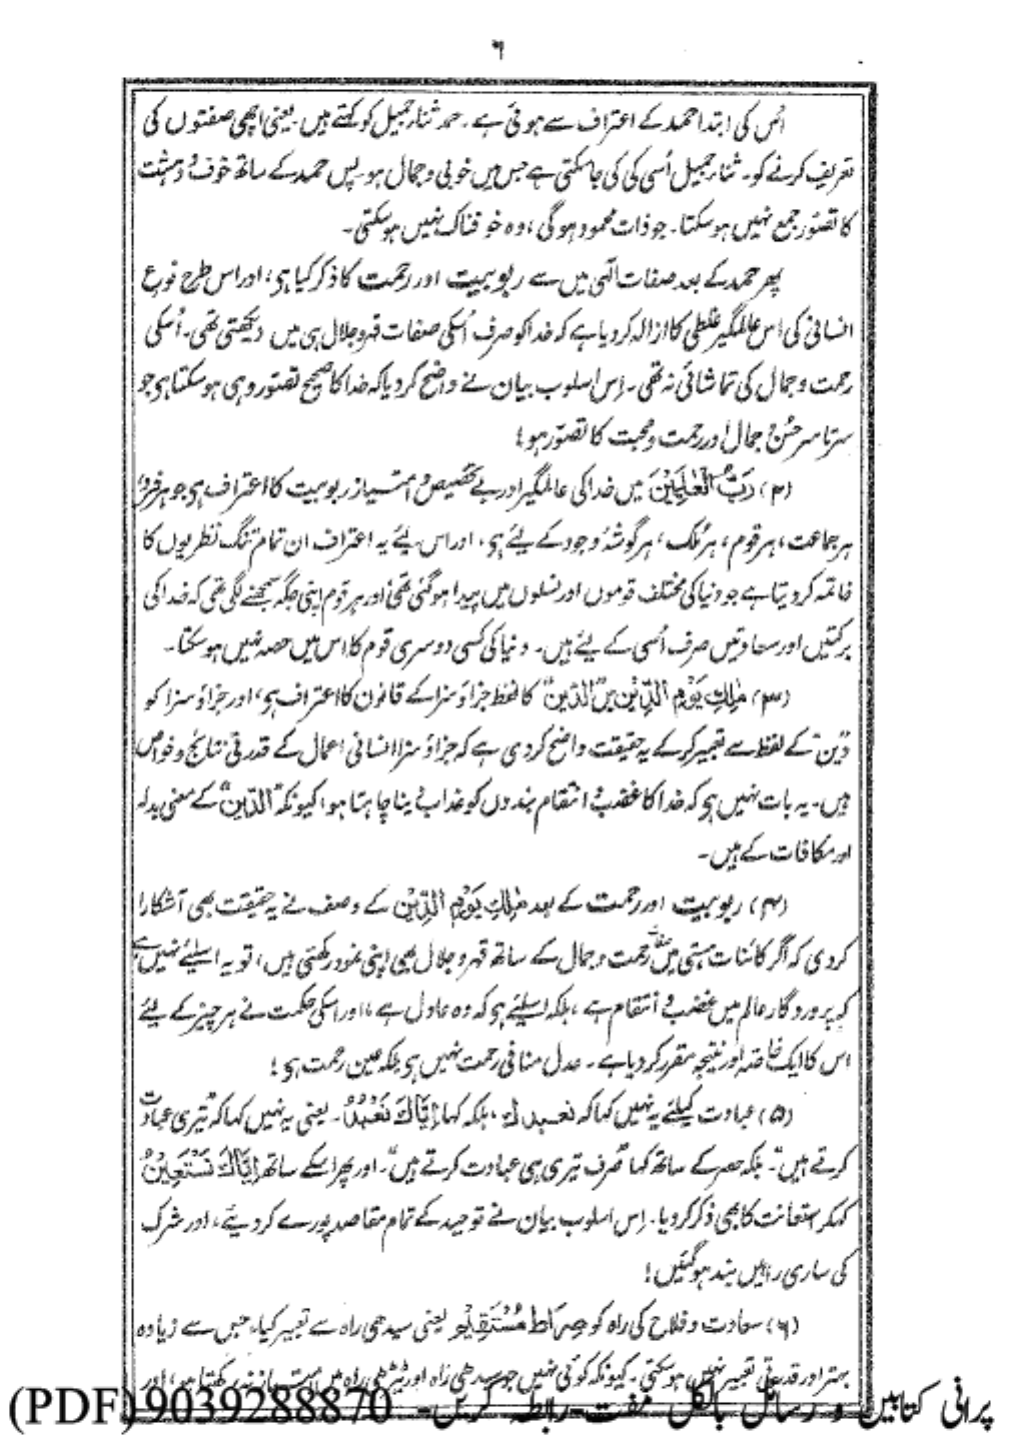 ۶
اُس کی ابتدا حمد کے اعتراف سے ہوئی ہے۔ حمد ثناء جمیل کو کہتے ہیں۔ یعنی اچھی صفتوں کی
تعریف کرنے کو۔ ثناء جمیل اُسی کی کی جاسکتی ہے جس میں خوبی و جمال ہو۔ پس حمد کے ساتھ خوف و دہشت
کا تصوّر جمع نہیں ہوسکتا۔ جو ذات محمود ہوگی، وہ خوفناک نہیں ہوسکتی۔
پھر حمد کے بعد صفات الٰہی میں سے ربوبیت اور رحمت کا ذکر کیا ہی، اور اس طرح نوع
انسانی کی اس عالمگیر غلطی کا ازالہ کردیا ہے کہ خدا کو صرف اُسکی صفات قہر و جلال ہی میں دیکھتی تھی۔ اُسکی
رحمت و جمال کی تماشائی نہ تھی۔ اِس اسلوب بیان نے واضح کردیا کہ خدا کا صحیح تصوّر وہی ہوسکتا ہی جو
سرتاسر حُسن و جمال اور رحمت و محبت کا تصوّر ہو!
(۲) رَبُّ الْعٰلَمِیْنَ میں خدا کی عالمگیر اور بے تخصیص و امتیاز ربوبیت کا اعتراف ہی جو ہر فرد،
ہر جماعت، ہر قوم، ہر مُلک، ہر گوشۂ وجود کے لیئے ہی، اور اس لیئے یہ اعتراف ان تمام تنگ نظریوں کا
خاتمہ کردیتا ہے جو دنیا کی مختلف قوموں اور نسلوں میں پیدا ہوگئی تھی اور ہر قوم اپنی جگہ سمجھنے لگی تھی کہ خدا کی
برکتیں اور سعادتیں صرف اُسی کے لیئے ہیں۔ دنیا کی کسی دوسری قوم کا اس میں حصہ نہیں ہوسکتا۔
(۳) مٰلِكِ یَوْمِ الدِّیْنِ میں "الدین" کا لفظ جزاؤ سزا کے قانون کا اعتراف ہی، اور جزاؤ سزا کو
"دین" کے لفظ سے تعبیر کرکے یہ حقیقت واضح کردی ہے کہ جزاؤ سزا انسانی اعمال کے قدرتی نتائج و خواص
ہیں۔ یہ بات نہیں ہی کہ خدا کا غضب و انتقام بندوں کو عذاب دینا چاہتا ہو، کیونکہ "الدّین" کے معنی بدلہ
اور مکافات کے ہیں۔
(۴) ربوبیت اور رحمت کے بعد مٰلِكِ یَوْمِ الدِّیْنِ کے وصف نے یہ حقیقت بھی آشکارا
کردی کہ اگر کائنات ہستی میں رحمت و جمال کے ساتھ قہر و جلال بھی اپنی نمود رکھتی ہیں، تو یہ اسلیئے نہیں ہے
کہ پروردگار عالم میں غضب و انتقام ہے، بلکہ اسلیئے ہی کہ وہ عادل ہے، اور اسکی حکمت نے ہر چیز کے لیئے
اس کا ایک خاصّہ اور نتیجہ مقرر کردیا ہے۔ عدل منافی رحمت نہیں ہی بلکہ عین رحمت ہی!
(۵) عبادت کیلئے یہ نہیں کہا کہ نعبدك، بلکہ کہا اِیَّاكَ نَعْبُدُ۔ یعنی یہ نہیں کہا کہ "تیری عبادت
کرتے ہیں"۔ بلکہ حصر کے ساتھ کہا "صرف تیری ہی عبادت کرتے ہیں"۔ اور پھر اسکے ساتھ اِیَّاكَ نَسْتَعِیْنُ
کہکر استعانت کا بھی ذکر کردیا۔ اِس اسلوب بیان نے توحید کے تمام مقاصد پورے کردیئے، اور شرک
کی ساری راہیں بند ہوگئیں!
(۶) سعادت و فلاح کی راہ کو صِرَاطِ مُسْتَقِیْم یعنی سیدھی راہ سے تعبیر کیا، جس سے زیادہ
بہتر اور قدرتی تعبیر نہیں ہوسکتی۔ کیونکہ کوئی نہیں جو سیدھی راہ اور ٹیڑھی راہ میں امتیاز نہ رکھتا ہو، اور
پرانی کتابیں و رسائل بالکل مفت۔ رابطہ کریں۔ 9039288870 (PDF)